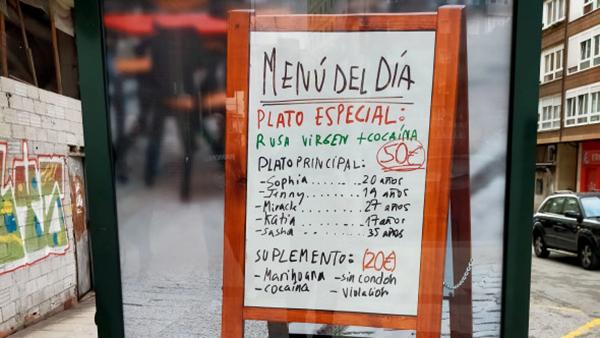 MENÚ DEL DÍA
PLATO ESPECIAL:
RUSA VIRGEN + COCAÍNA
50€
PLATO PRINCIPAL:
- Sophia ........ 20 años
- Jenny ......... 19 años
- Miracle ........ 27 años
- Katia ......... 17 años
- Sasha ......... 35 años
SUPLEMENTO: (20€)
- Marihuana - sin condón
- cocaína - violación